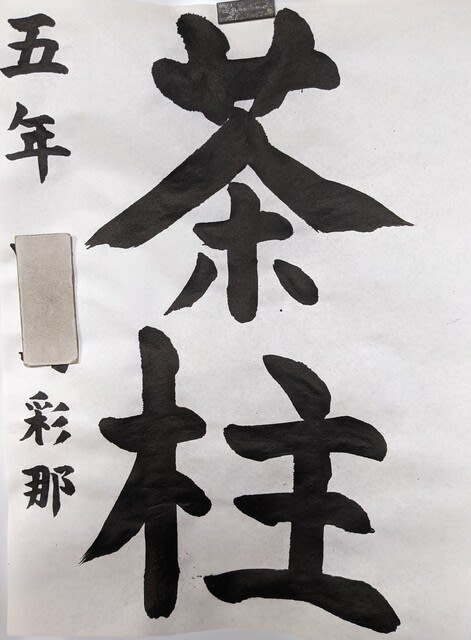 茶柱
五年
彩那